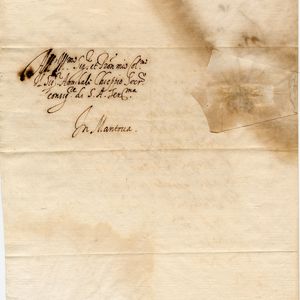 All Ill.mo Sig.r et Pron mio oss.mo
Il Sig.r Annibale Chieppio Secr.
Consig.re di S. A. Ser.ma
In Mantova